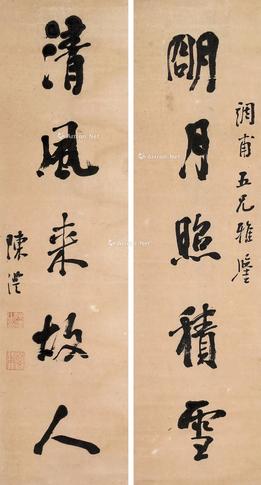 明月照積雪
調甫五兄雅鑒
清風來故人
陳澧
Artron.Net